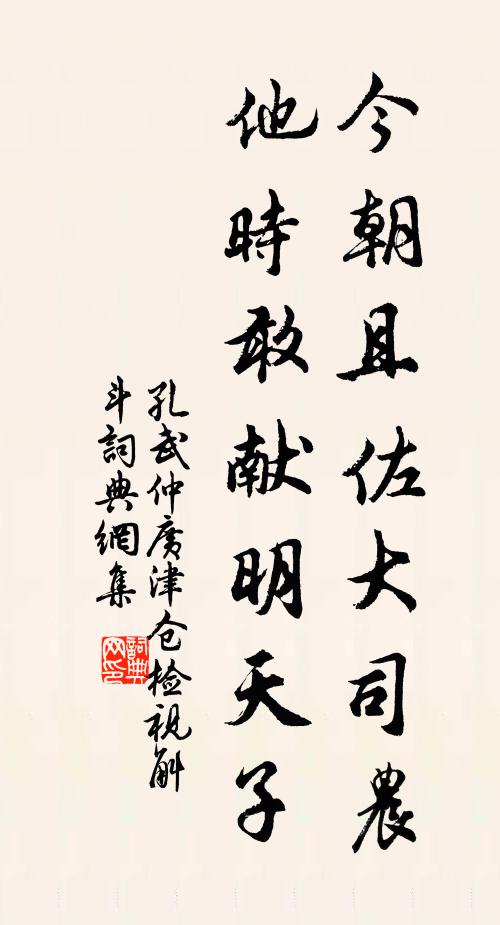 今朝且佐大司農
他時敢献明天子
孔武仲廣津仓检視斛
斗詞典網集
詞典网印